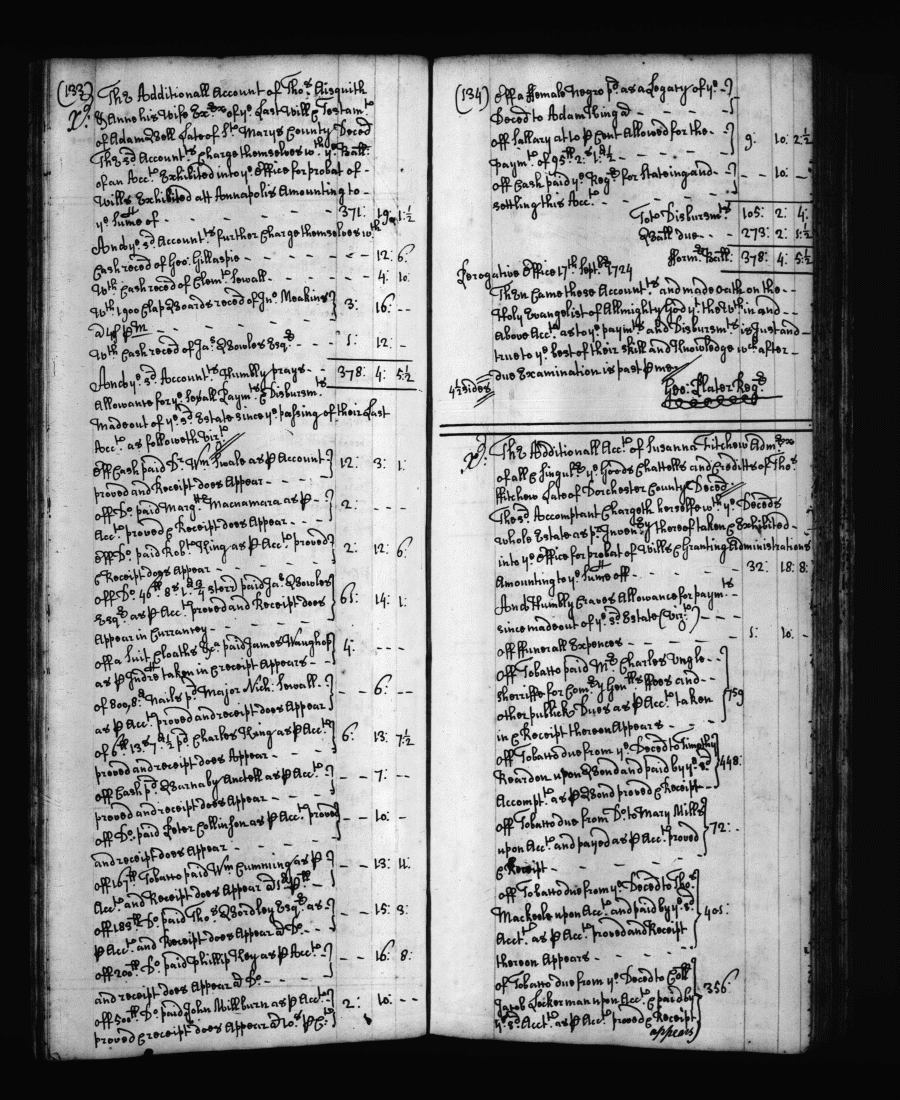 (133) The Additionall Account of Thos. Aisquith
Xd. & Anne his Wife Exex of ye. Last Will & Testamt.
of Adam Bell Late of St. Marys County Deced
The sd. Accounts. Charge themselves wth. ye. Ball:
of an Acct. Exhibited into ye. Office for probat of -
Wills Exhibited att Annapolis Amounting to -
ye. Sume of - - - - - 371: 19: 1½
And ye. sd. Accounts. further Charge themselves wth
Cash reced of Geo: Gillaspie - - - - 12: 6.
Wth. Cash reced of Clemt. Sewall - - - - 4: 10
Wth. 1900 Clap Boards reced of Jno. Meakins } 3: 16: --
@ 40s p M
Wth. Cash reced of Jas. Bowles Esqr. - - 1: 12: -
And ye. sd. Accounts. Humbly prays - 378: 4: 5½
Allowance for ye. sevall Paymts. & Disbursmts.
Made out of ye. sd. Estate since ye. passing of their Last
Acct. as followeth vizt.
Off Cash paid Dr. Wm. Swale as P Account } 12: 3: 1:
proved and Receipt does Appear - -
off Do. paid Margtt. Macnamara as P - } 2: - - -
Acct. proved & Receipt does Appear - - -
Off Do. paid Robt. King as P Acct. proved } 2: 12: 6
& Receipt does Appear - - - -
off Do. 46lb 8s. 1d. 4 Sterd paid Jas. Bowles } 61: 14: 1:
Esqr. as P Acct. proved and Receipt does
Appear in Currancy - -
off a Suit Cloaths &ca. paid James Waughop } 4: - - -
as P Indre taken in & receipt Appears - -
of 800, 8d. Nails pd. Major Nich: Sewall - } - - 6: - -
as P Acct. proved and receipt does Appear
of 6lb 13s 7d ½ pd Charles King as P Acct. } 6: 13: 7½
proved and receipt does Appear - -
off Cash pd Barnaby Anctell as P Acct. } - - 7: - -
proved and receipt does Appear - -
off Do. paid Peter Collinson as P Acct. proved } - - 10: - -
and receipt does Appear - - -
off 167lb. Tobatto paid Wm Cumming as P } - - 13: 11:
Acct. and Receipt does Appear @ 1d P lb
off 183lb. Do. paid Thos. Bordley Esqr. as - } - - 15: 3:
P Acct. and Receipt does Appear @ Do. - -
off 200lb. Do. paid Phillip Key as P Acct. } - - 16: 8:
and receipt does Appear @ Do. - -
off 500lb. Do. paid John Millburn as P Acct. } 2: 10: - -
proved & receipt does Appear @ 10s. P Ct.
(134) off a ffemale Negro pd. as a Legacy of ye. -
Deced to Adam Ring @ - - - -
off Sallary at 10 P Cent Allowed for the - } 9: 10: 2½
paymt. of 95lb. 2s: 1½ - - -
off Cash paid ye. Regr. for Stateing and - } - - 10: - -
settling this Acct. - - - -
Tot: Disbursmts 105: 2: 4:
Ball due - - 273: 2: 1½
fformr. Ball: 378: 4: 5½
Perogative Office 17th. Septr. 1724
Then Came these Accounts. and made oath on the - -
Holy Evangelist of Allmighty God yt. the within and - -
Above Acct. as to ye. paymts. and Disbursmts. is Just and -
true to ye. best of their Skill and Knowledge wch. after -
due Examination is past P me
4½ sides Geo: Plater Regr.
Xd. The Additionall Acct. of Susanna Fitchew Admx
of all & Singulr. ye. Goods Chattells and Creditts of Thos.
ffitchew Late of Dorchester County Deced
The sd. Accomptant Chargeth herselfe wth. ye. Deceds
whole Estate as pr. Inventy thereof taken & Exhibited - -
into ye. Office for probat of Wills & Granting Administrations
Amounting to ye. Sume off - - - - 32: 18: 8:
And Humbly Craves Allowance for paymts.
since made out of ye. sd. Estate (Vizt.)
off ffunerall Expences - - - - 1: 10: -
Off Tobatto paid Mr. Charles Ungle - -
Sherriffe for Comrs. Gentls. ffees and -
other publick Dues as P Acct. taken } 759
in & Receipt thereon Appears - -
off Tobatto due from ye. Deced to Timothy
Reardon upon Bond and paid by ye. sd. } 448:
Accompt. as P Bond proved & Receipt - -
off Tobatto due from Do. to Mary Mills
upon Acct. and payed as P Acct. proved } 72: -
& Receipt - - - - -
off Tobatto due from ye. Deced to Thos.
Mackeele upon Acct. and paid by ye. sd. } 401:
Acct. as P Acct. proved and Receipt
thereon Appears - - - -
of Tobatto due from ye. Deced to Coll
Jacob Lockerman upon Acct. & paid by } 356
ye. sd. Acct. as P Acct. proved & Receipt
appears